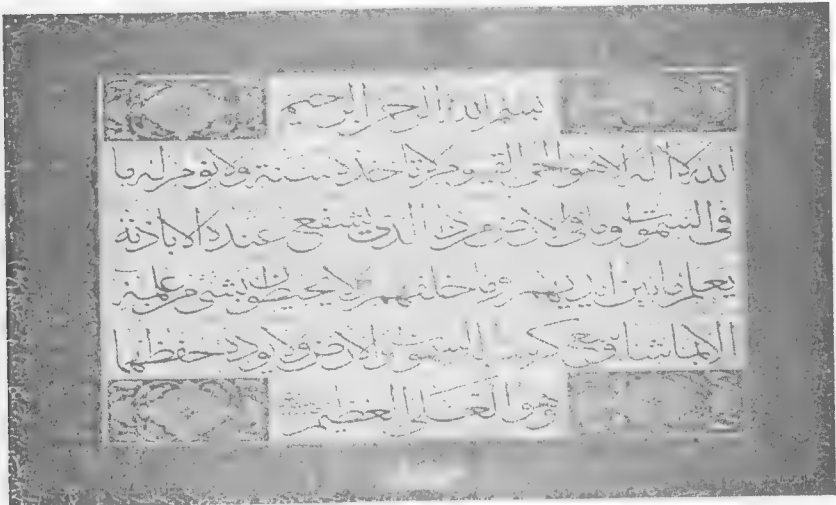 بسم الله الرحمن الرحيم
الله لا اله الا هو الحى القيوم لا تاخذه سنة ولا نوم له ما
فى السموات وما فى الارض من ذا الذى يشفع عنده الا باذنه
يعلم ما بين ايديهم وما خلفهم ولا يحيطون بشىء من علمه
الا بما شاء وسع كرسيه السموات والارض ولا يوده حفظهما
وهو العلى العظيم